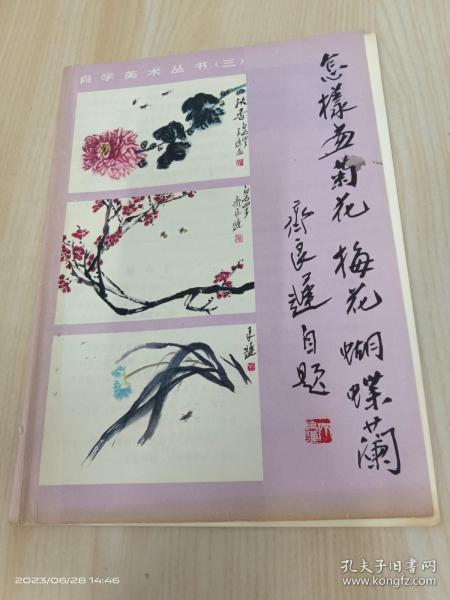 自学美术丛书(三)
怎樣画菊花 梅花 蝴蝶蘭
齐良遲自题
秋香
良遲
2023/06/28 14:46
孔夫子旧书网
www.kongfz.com